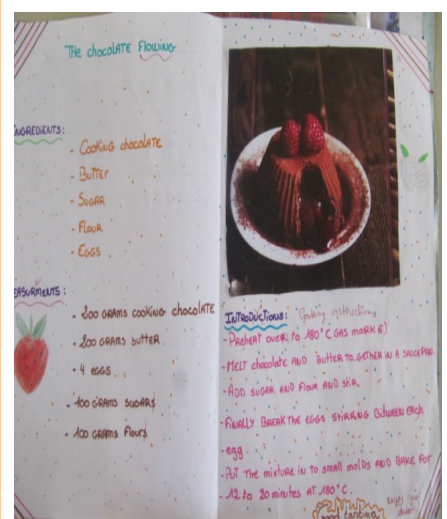 The chocolate Flowing
INGREDIENTS:
- Cooking chocolate
- Butter
- Sugar
- Flour
- Eggs
EASURMENTS:
- 200 GRAMS COOKING chocolate
- 200 GRAMS butter
- 4 eggs
- 100 GRAMS SUGARS
- 100 GRAMS Flours
INTRODUCTIONS: Cooking instructions
- Preheat oven to 180°C GAS mark 6)
- MELT chocolate AND BUTTER TO.GETHER IN A SAUCEPAN.
- ADD SUGAR AND Flour AND Stir
- FINALLY BREAK THE EGGS STIRRING BETWEEN EACH
- egg.
- PUT THE mixture in to small molds AND BAKE FOR
- 12 to 20 minutes AT 180°C.